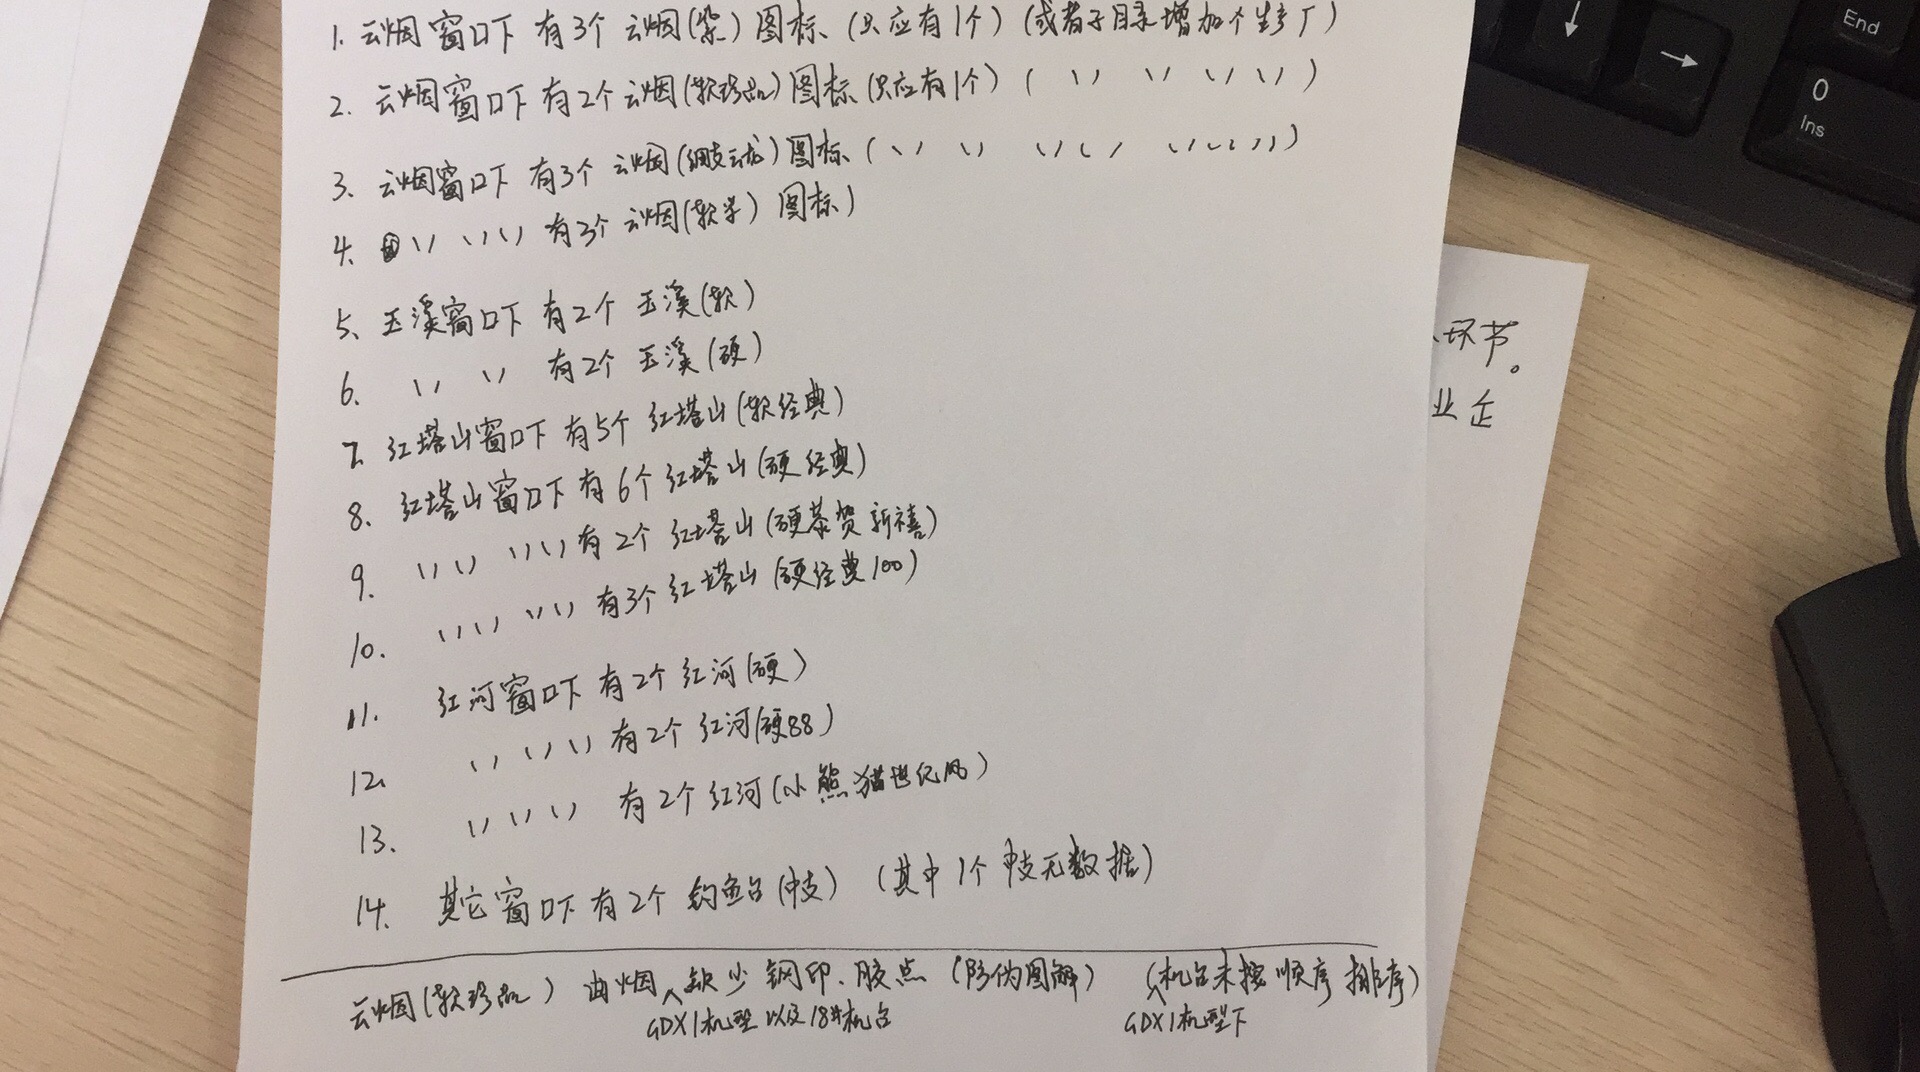 1. 云烟窗口下 有3个 云烟(紫)图标、(只应有1个)(或者子目录增加个生产厂)
2. 云烟窗口下 有2个云烟(软珍品)图标(只应有1个)( 〃 〃 〃 〃 )
3. 云烟窗口下 有3个 云烟(细支云龙)图标(〃 〃 〃 〃 〃 〃)
4. 〃 〃 〃 有3个 云烟(软紫) 图标)
5. 玉溪窗口下 有2个 玉溪(软)
6. 〃 〃 有2个 玉溪(硬)
7. 红塔山窗口下 有5个 红塔山(软经典)
8. 红塔山窗口下 有6个 红塔山(硬经典)
9. 〃 〃 〃 〃 有2个 红塔山(硬恭贺新禧)
10. 〃 〃 〃 〃 有3个 红塔山(硬经典100)
11. 红河窗口下 有2个 红河(硬)
12. 〃 〃 〃 有2个 红河(硬88)
13. 〃 〃 〃 有2个 红河(小熊猫世纪风)
14. 其它窗口下 有2个 钓鱼台(中支)(其中1个中支无数据)
云烟(软珍品) 曲烟 缺少钢印、胶点(防伪图解) (机台未按顺序排序)
GDX1机型以及18#机台 GDX1机型下
环节。
业企
End
0
Ins